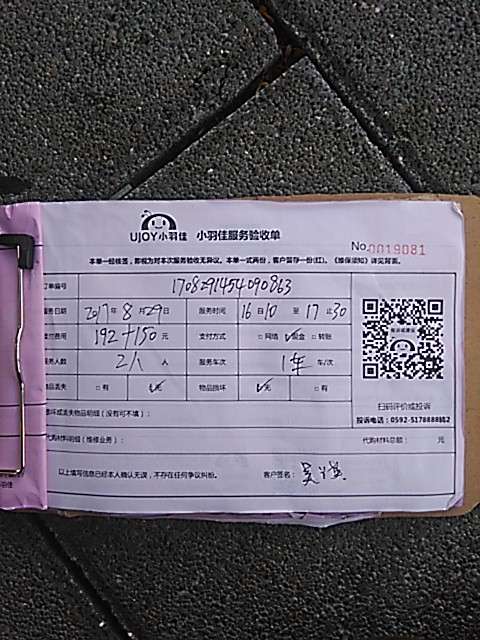 UJOY小羽佳 小羽佳服务验收单
No.0019081
本单一经核签,即视为对本次服务验收无异议。本单一式两份,客户留存一份(红)。《维保须知》详见背面。
订单编号 1708291454090863
服务日期 2017年8月29日 服务时间 16日10至17止30
支付费用 192+150元 支付方式 □网络 ☑现金 □转账
服务人数 2人 人 服务车次 1车 车/次
物品丢失 □有 ☑无 物品损坏 ☑无 □有
损坏或丢失物品明细(没有可不填):
代购材料明细(维修业务): 代购材料总额: 元
以上填写信息已经本人确认无误,不存在任何争议纠纷。 客户签名:
扫码评价或投诉
投诉电话:0592-5178888
小羽佳